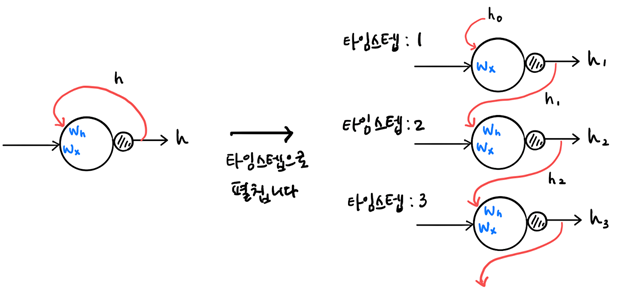 h
Wh
Wx
h
타임스텝으로
펼칩니다
타임스텝 : 1
h₀
Wx
h₁
h₁
타임스텝 : 2
Wh
Wx
h₂
h₂
타임스텝 : 3
Wh
Wx
h₃